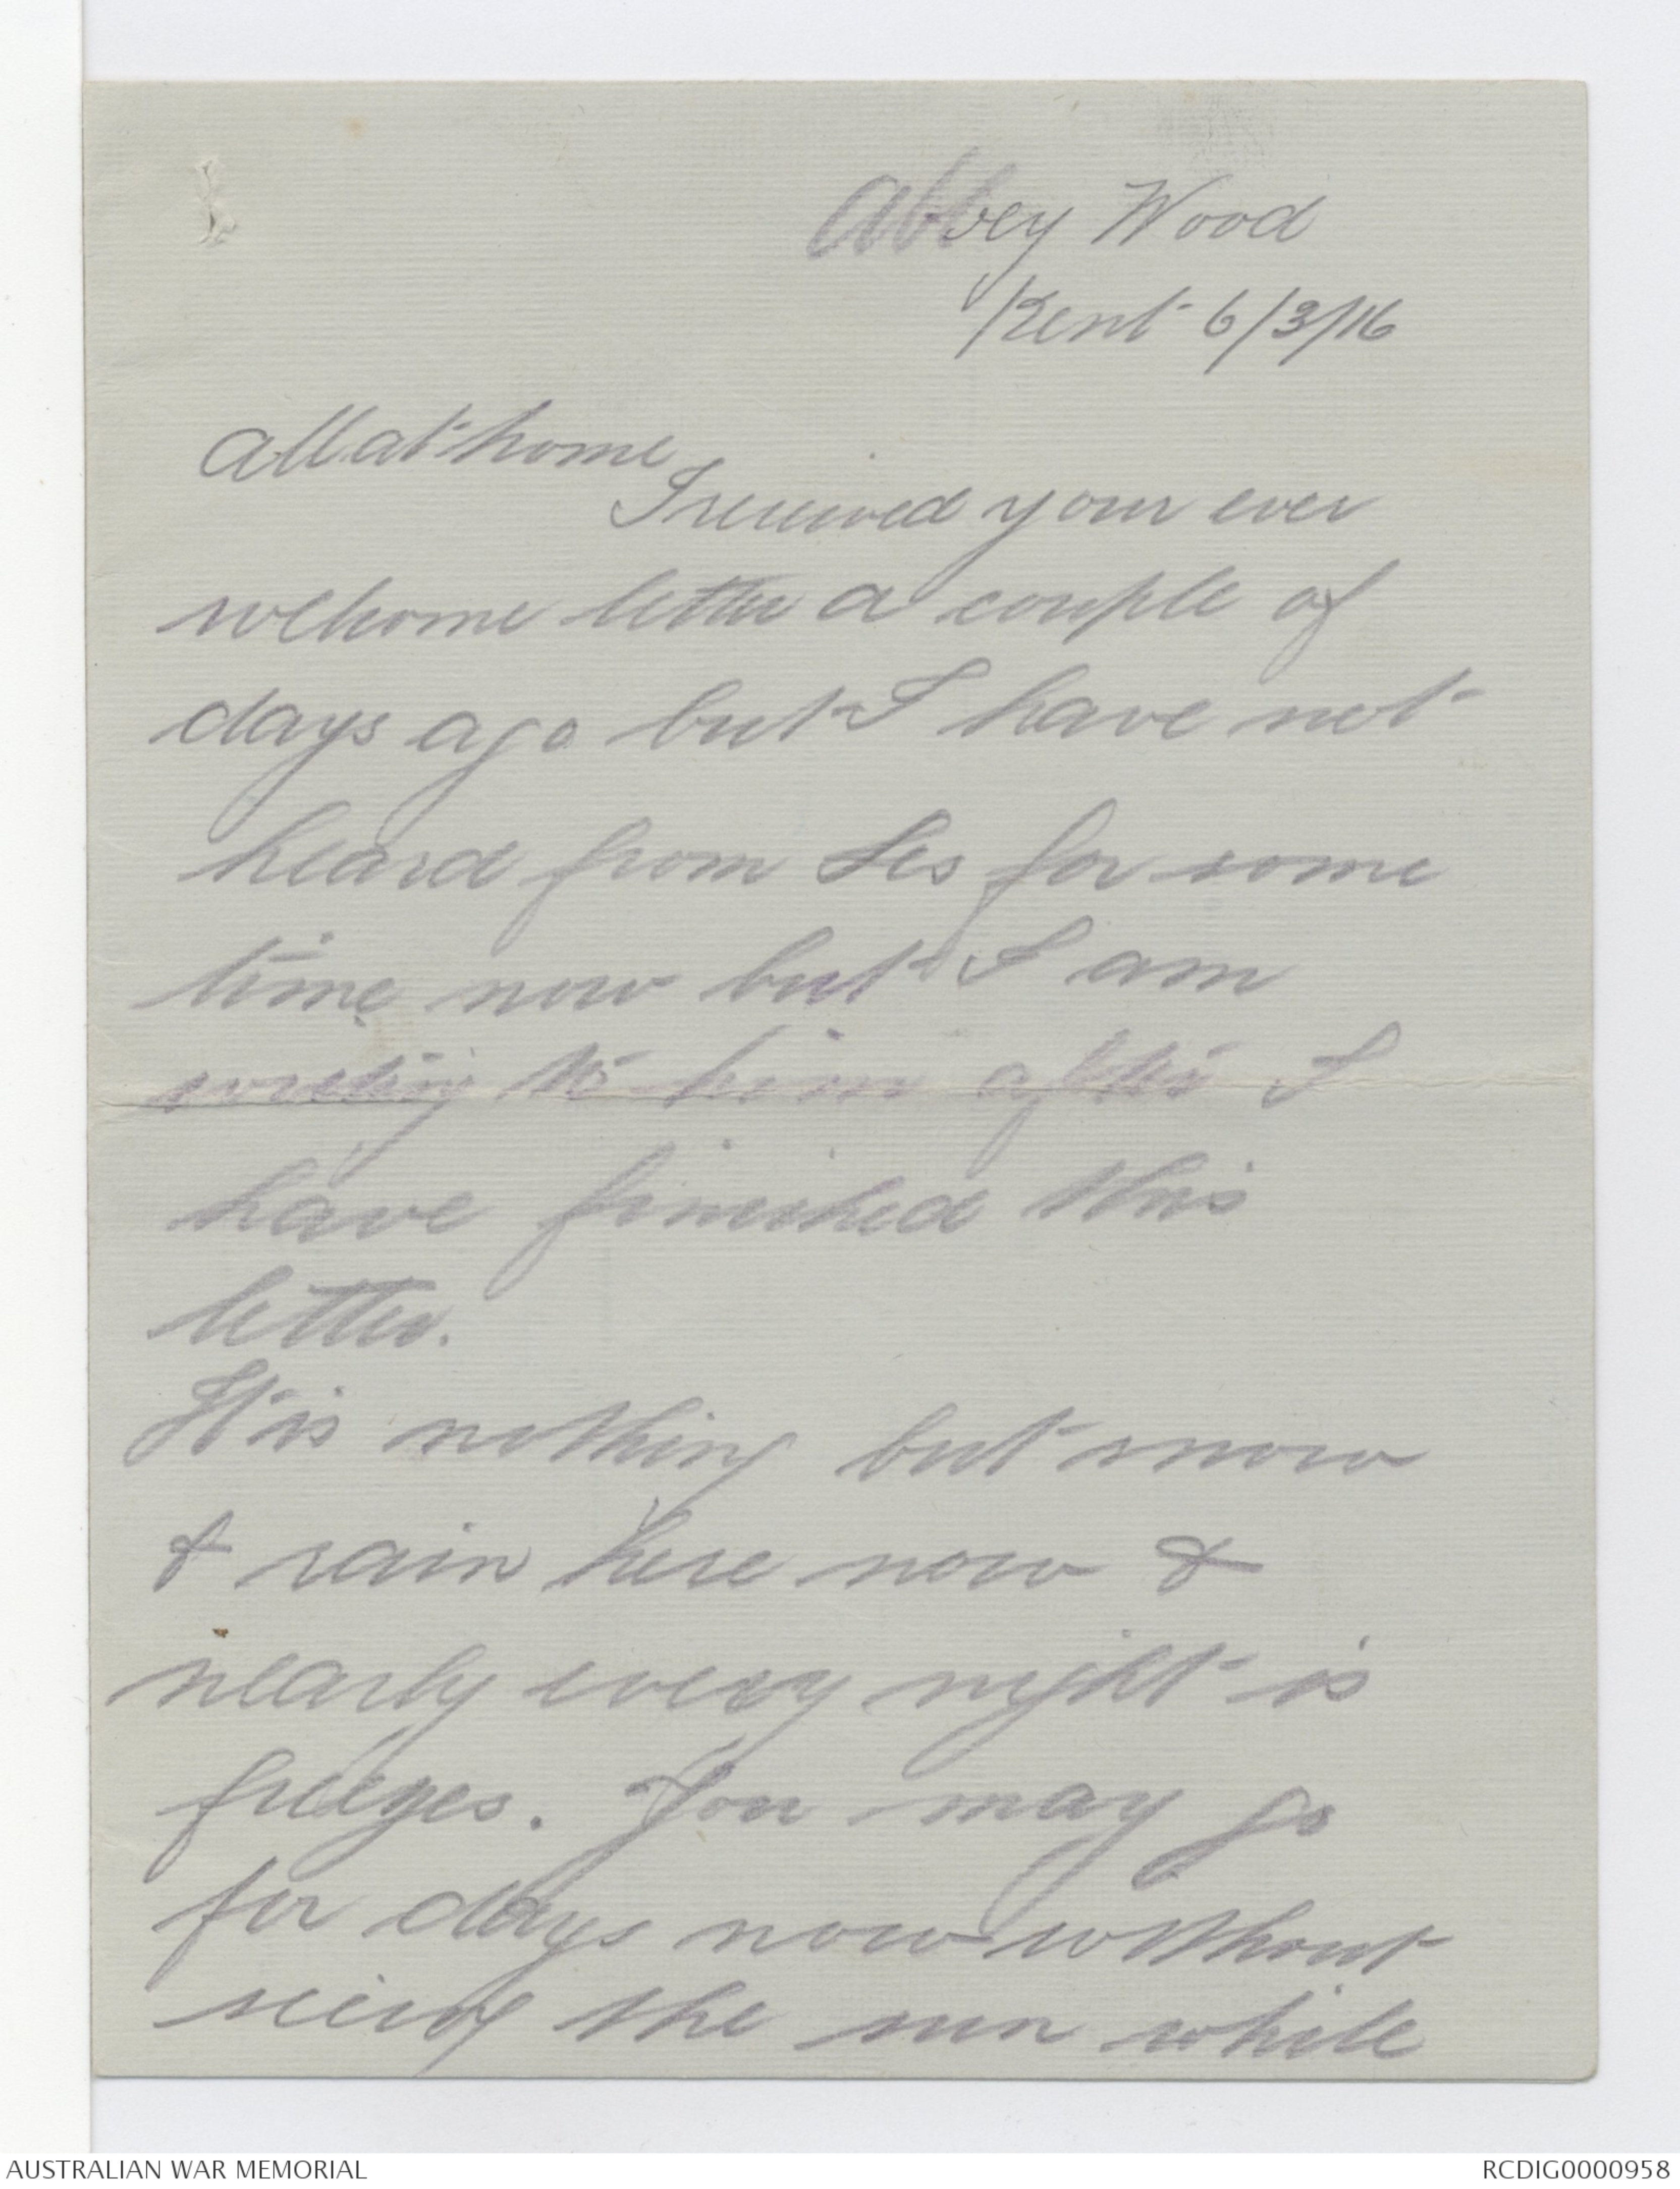 Abbey Wood
Kent 6/3/16
All at home
I received your ever
welcome letter a couple of
days ago but I have not
heard from Les for some
time now but I am
writing to him after I
have finished this
letter.
It is nothing but snow
& rain here now &
nearly every night is
freezes. You may go
for days now without
seeing the sun while
AUSTRALIAN WAR MEMORIAL
RCDIG0000958